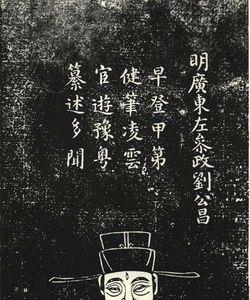 明廣東左叅政劉公昌
早登甲第
健筆凌雲
官遊豫粵
纂述多聞